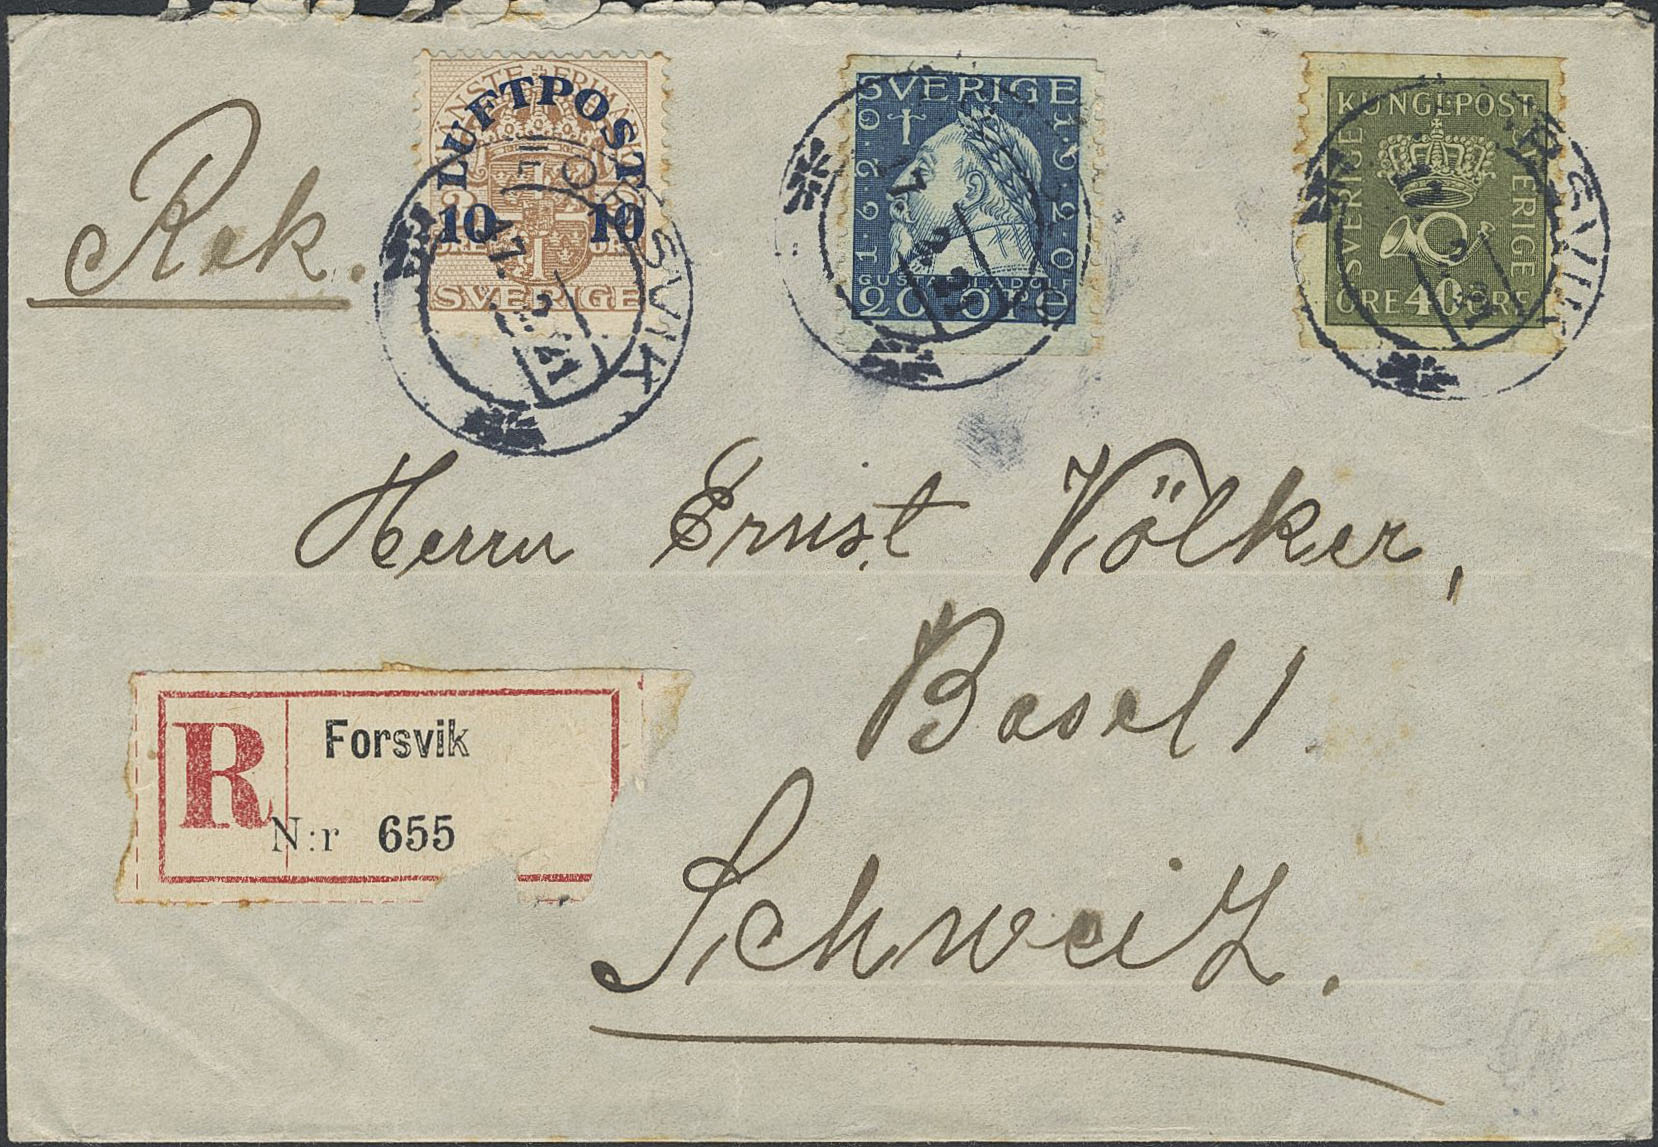 Rek.
LUFTPOST
10 10
SVERIGE
SVERIGE
1620 1920
GUSTAF II ADOLF
20 ÖRE
KUNGL POST
SVERIGE SVERIGE
ÖRE 40 ÖRE
FORSVIK
Herrn Ernst Völker,
Basel 1.
Schweiz.
R Forsvik
N:r 655